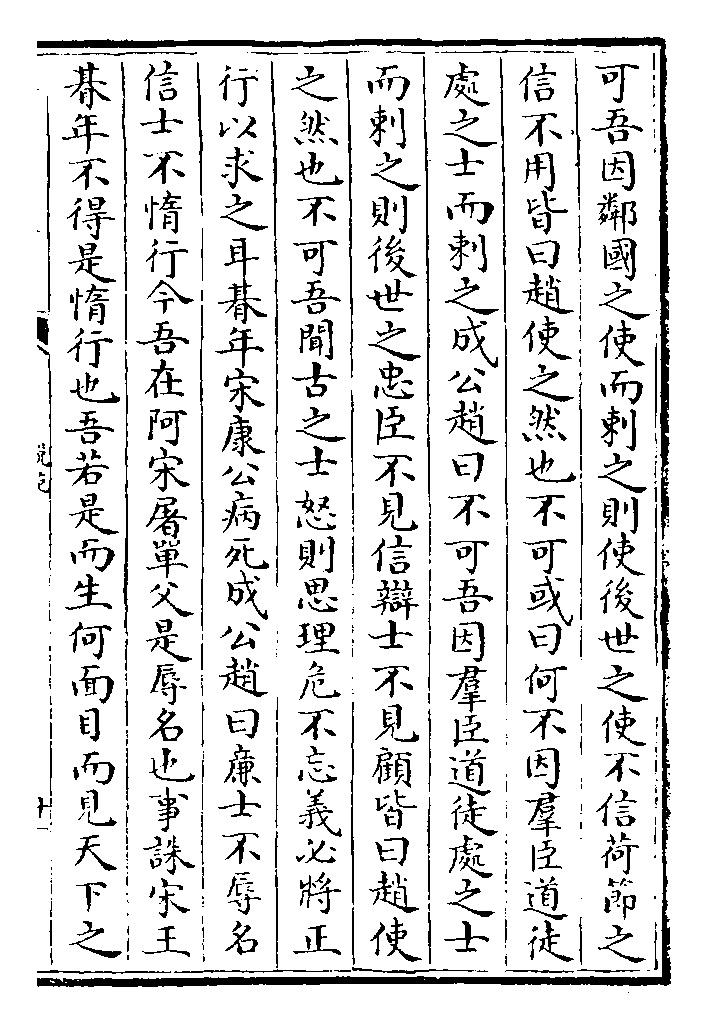 可吾因鄰國之使而刺之則使後世之使不信荷節之
信不用皆曰趙使之然也不可或曰何不因羣臣道徒
處之士而刺之成公趙曰不可吾因羣臣道徒處之士
而刺之則後世之忠臣不見信辯士不見顧皆曰趙使
之然也不可吾聞古之士怒則思理危不忘義必將正
行以求之耳朞年宋康公病死成公趙曰廉士不辱名
信士不惰行今吾在阿宋屠單父是辱名也事誅宋王
朞年不得是惰行也吾若是而生何面目而見天下之
說苑
十